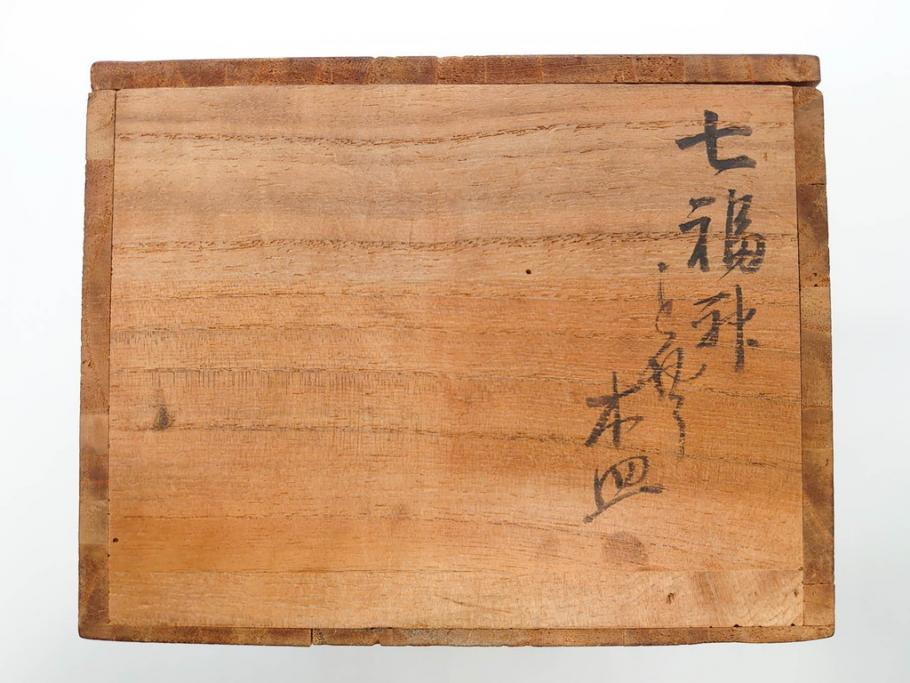 七福神
木皿